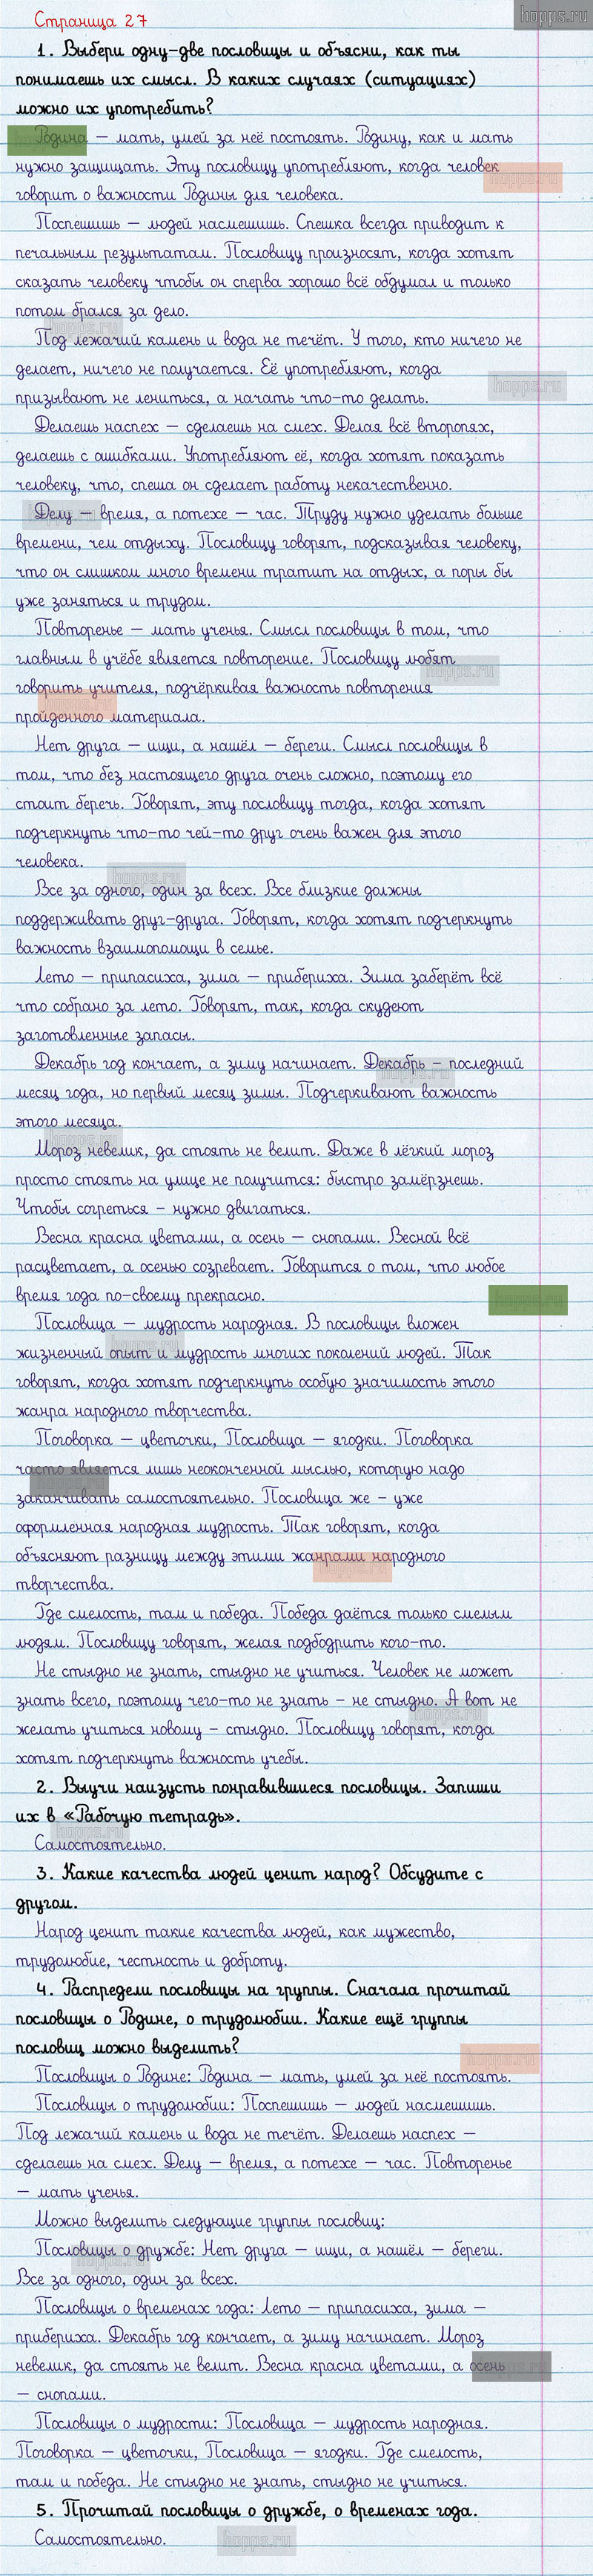 hopps.ru
Страница 27
1. Выбери одну-две пословицы и объясни, как ты
понимаешь их смысл. В каких случаях (ситуациях)
можно их употребить?
Родина — мать, умей за неё постоять. Родину, как и мать
нужно защищать. Эту пословицу употребляют, когда человек
говорит о важности Родины для человека.
Поспешишь — людей насмешишь. Спешка всегда приводит к
печальным результатам. Пословицу произносят, когда хотят
сказать человеку чтобы он сперва хорошо всё обдумал и только
потом брался за дело.
Под лежачий камень и вода не течёт. У того, кто ничего не
делает, ничего не получается. Её употребляют, когда
призывают не лениться, а начать что-то делать.
Делаешь наспех — сделаешь на смех. Делая всё второпях,
делаешь с ошибками. Употребляют её, когда хотят показать
человеку, что, спеша он сделает работу некачественно.
Делу — время, а потехе — час. Труду нужно уделать больше
времени, чем отдыху. Пословицу говорят, подсказывая человеку,
что он слишком много времени тратит на отдых, а поры бы
уже заняться и трудом.
Повторенье — мать ученья. Смысл пословицы в том, что
главным в учёбе является повторение. Пословицу любят
говорить учителя, подчёркивая важность повторения
пройденного материала.
Нет друга — ищи, а нашёл — береги. Смысл пословицы в
том, что без настоящего друга очень сложно, поэтому его
стоит беречь. Говорят, эту пословицу тогда, когда хотят
подчеркнуть что-то чей-то друг очень важен для этого
человека.
Все за одного, один за всех. Все близкие должны
поддерживать друг-друга. Говорят, когда хотят подчеркнуть
важность взаимопомощи в семье.
Лето — припасиха, зима — прибериха. Зима заберёт всё
что собрано за лето. Говорят, так, когда скудеют
заготовленные запасы.
Декабрь год кончает, а зиму начинает. Декабрь – последний
месяц года, но первый месяц зимы. Подчеркивают важность
этого месяца.
Мороз невелик, да стоять не велит. Даже в лёгкий мороз
просто стоять на улице не получится: быстро замёрзнешь.
Чтобы согреться – нужно двигаться.
Весна красна цветами, а осень — снопами. Весной всё
расцветает, а осенью созревает. Говорится о том, что любое
время года по-своему прекрасно.
Пословица — мудрость народная. В пословицы вложен
жизненный опыт и мудрость многих поколений людей. Так
говорят, когда хотят подчеркнуть особую значимость этого
жанра народного творчества.
Поговорка — цветочки, Пословица — ягодки. Поговорка
часто является лишь неоконченной мыслью, которую надо
заканчивать самостоятельно. Пословица же – уже
оформленная народная мудрость. Так говорят, когда
объясняют разницу между этими жанрами народного
творчества.
Где смелость, там и победа. Победа даётся только смелым
людям. Пословицу говорят, желая подбодрить кого-то.
Не стыдно не знать, стыдно не учиться. Человек не может
знать всего, поэтому чего-то не знать – не стыдно. А вот не
желать учиться новому – стыдно. Пословицу говорят, когда
хотят подчеркнуть важность учебы.
2. Выучи наизусть понравившиеся пословицы. Запиши
их в «Рабочую тетрадь».
Самостоятельно.
3. Какие качества людей ценит народ? Обсудите с
другом.
Народ ценит такие качества людей, как мужество,
трудолюбие, честность и доброту.
4. Распредели пословицы на группы. Сначала прочитай
пословицы о Родине, о трудолюбии. Какие ещё группы
пословиц можно выделить?
Пословицы о Родине: Родина — мать, умей за неё постоять.
Пословицы о трудолюбии: Поспешишь — людей насмешишь.
Под лежачий камень и вода не течёт. Делаешь наспех —
сделаешь на смех. Делу — время, а потехе — час. Повторенье
— мать ученья.
Можно выделить следующие группы пословиц:
Пословицы о дружбе: Нет друга — ищи, а нашёл — береги.
Все за одного, один за всех.
Пословицы о временах года: Лето — припасиха, зима —
прибериха. Декабрь год кончает, а зиму начинает. Мороз
невелик, да стоять не велит. Весна красна цветами, а осень
— снопами.
Пословицы о мудрости: Пословица — мудрость народная.
Поговорка — цветочки, Пословица — ягодки. Где смелость,
там и победа. Не стыдно не знать, стыдно не учиться.
5. Прочитай пословицы о дружбе, о временах года.
Самостоятельно.
hopps.ru